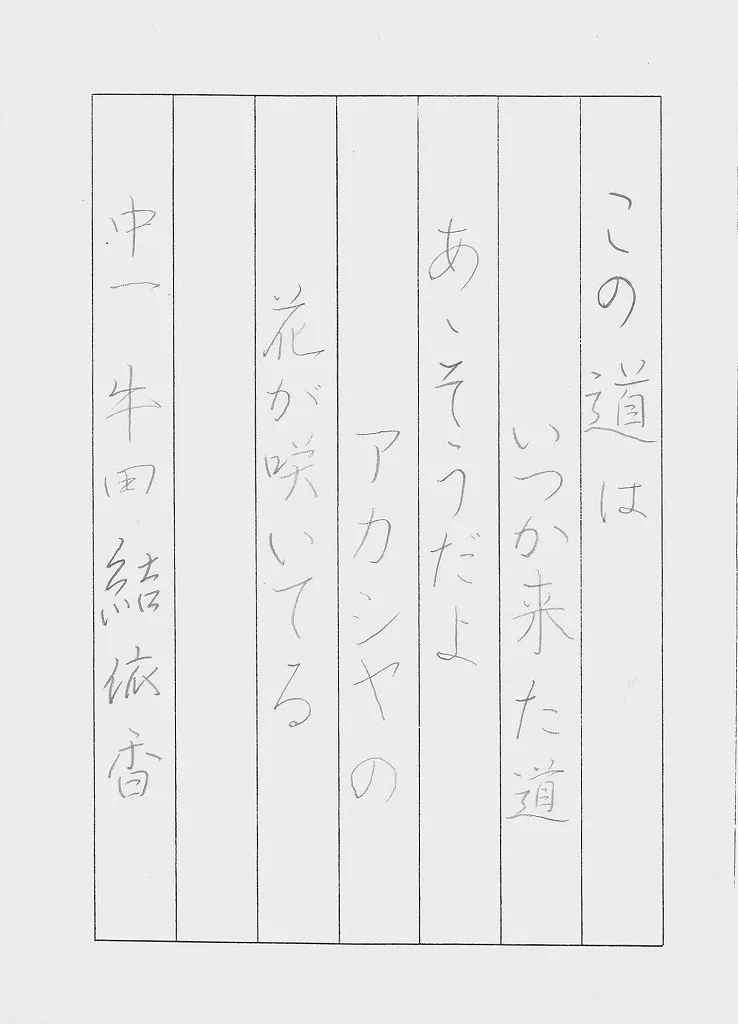 この道は
いつか来た道
あゝそうだよ
アカシヤの
花が咲いてる
中一 牛田結依香